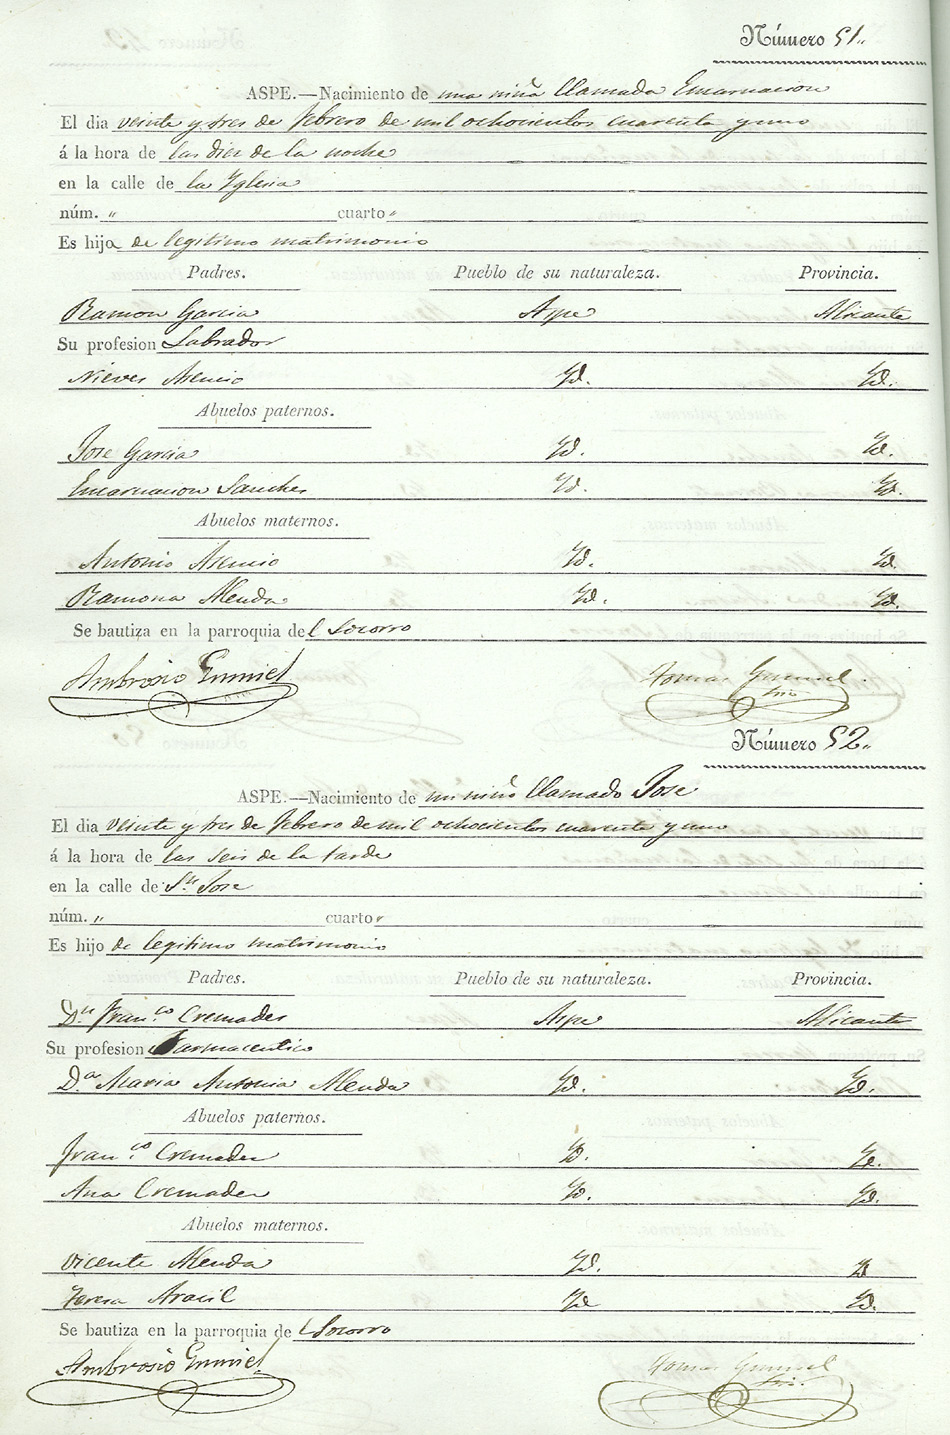 Número 51„
ASPE.—Nacimiento de una niña llamada Encarnacion
El dia veinte y tres de febrero de mil ochocientos cuarenta y uno
á la hora de las diez de la noche
en la calle de la Yglesia
núm. „ cuarto „
Es hija de legitimo matrimonio
Padres. Pueblo de su naturaleza. Provincia.
Ramon Garcia Aspe Alicante
Su profesion Labrador
Nieves Asencio Yd. Yd.
Abuelos paternos.
Jose Garcia Yd. Yd.
Encarnacion Sanches Yd. Yd.
Abuelos maternos.
Antonio Asencio Yd. Yd.
Ramona Alenda Yd. Yd.
Se bautiza en la parroquia del Socorro
Ambrosio Gumiel Tomas Gumiel
Srio
Número 52„
ASPE.—Nacimiento de un niño llamado Jose
El dia veinte y tres de febrero de mil ochocientos cuarenta y uno
á la hora de las seis de la tarde
en la calle de Sn Jose
núm. „ cuarto „
Es hijo de legitimo matrimonio
Padres. Pueblo de su naturaleza. Provincia.
Dn Fran.co Cremades Aspe Alicante
Su profesion Farmaceutico
D.a Maria Antonia Alenda Yd. Yd.
Abuelos paternos.
Fran.co Cremades Yd. Yd.
Ana Cremades Yd. Yd.
Abuelos maternos.
Vicente Alenda Yd. Yd
Teresa Aracil Yd Yd.
Se bautiza en la parroquia del Socorro
Ambrosio Gumiel Tomas Gumiel
Srio.